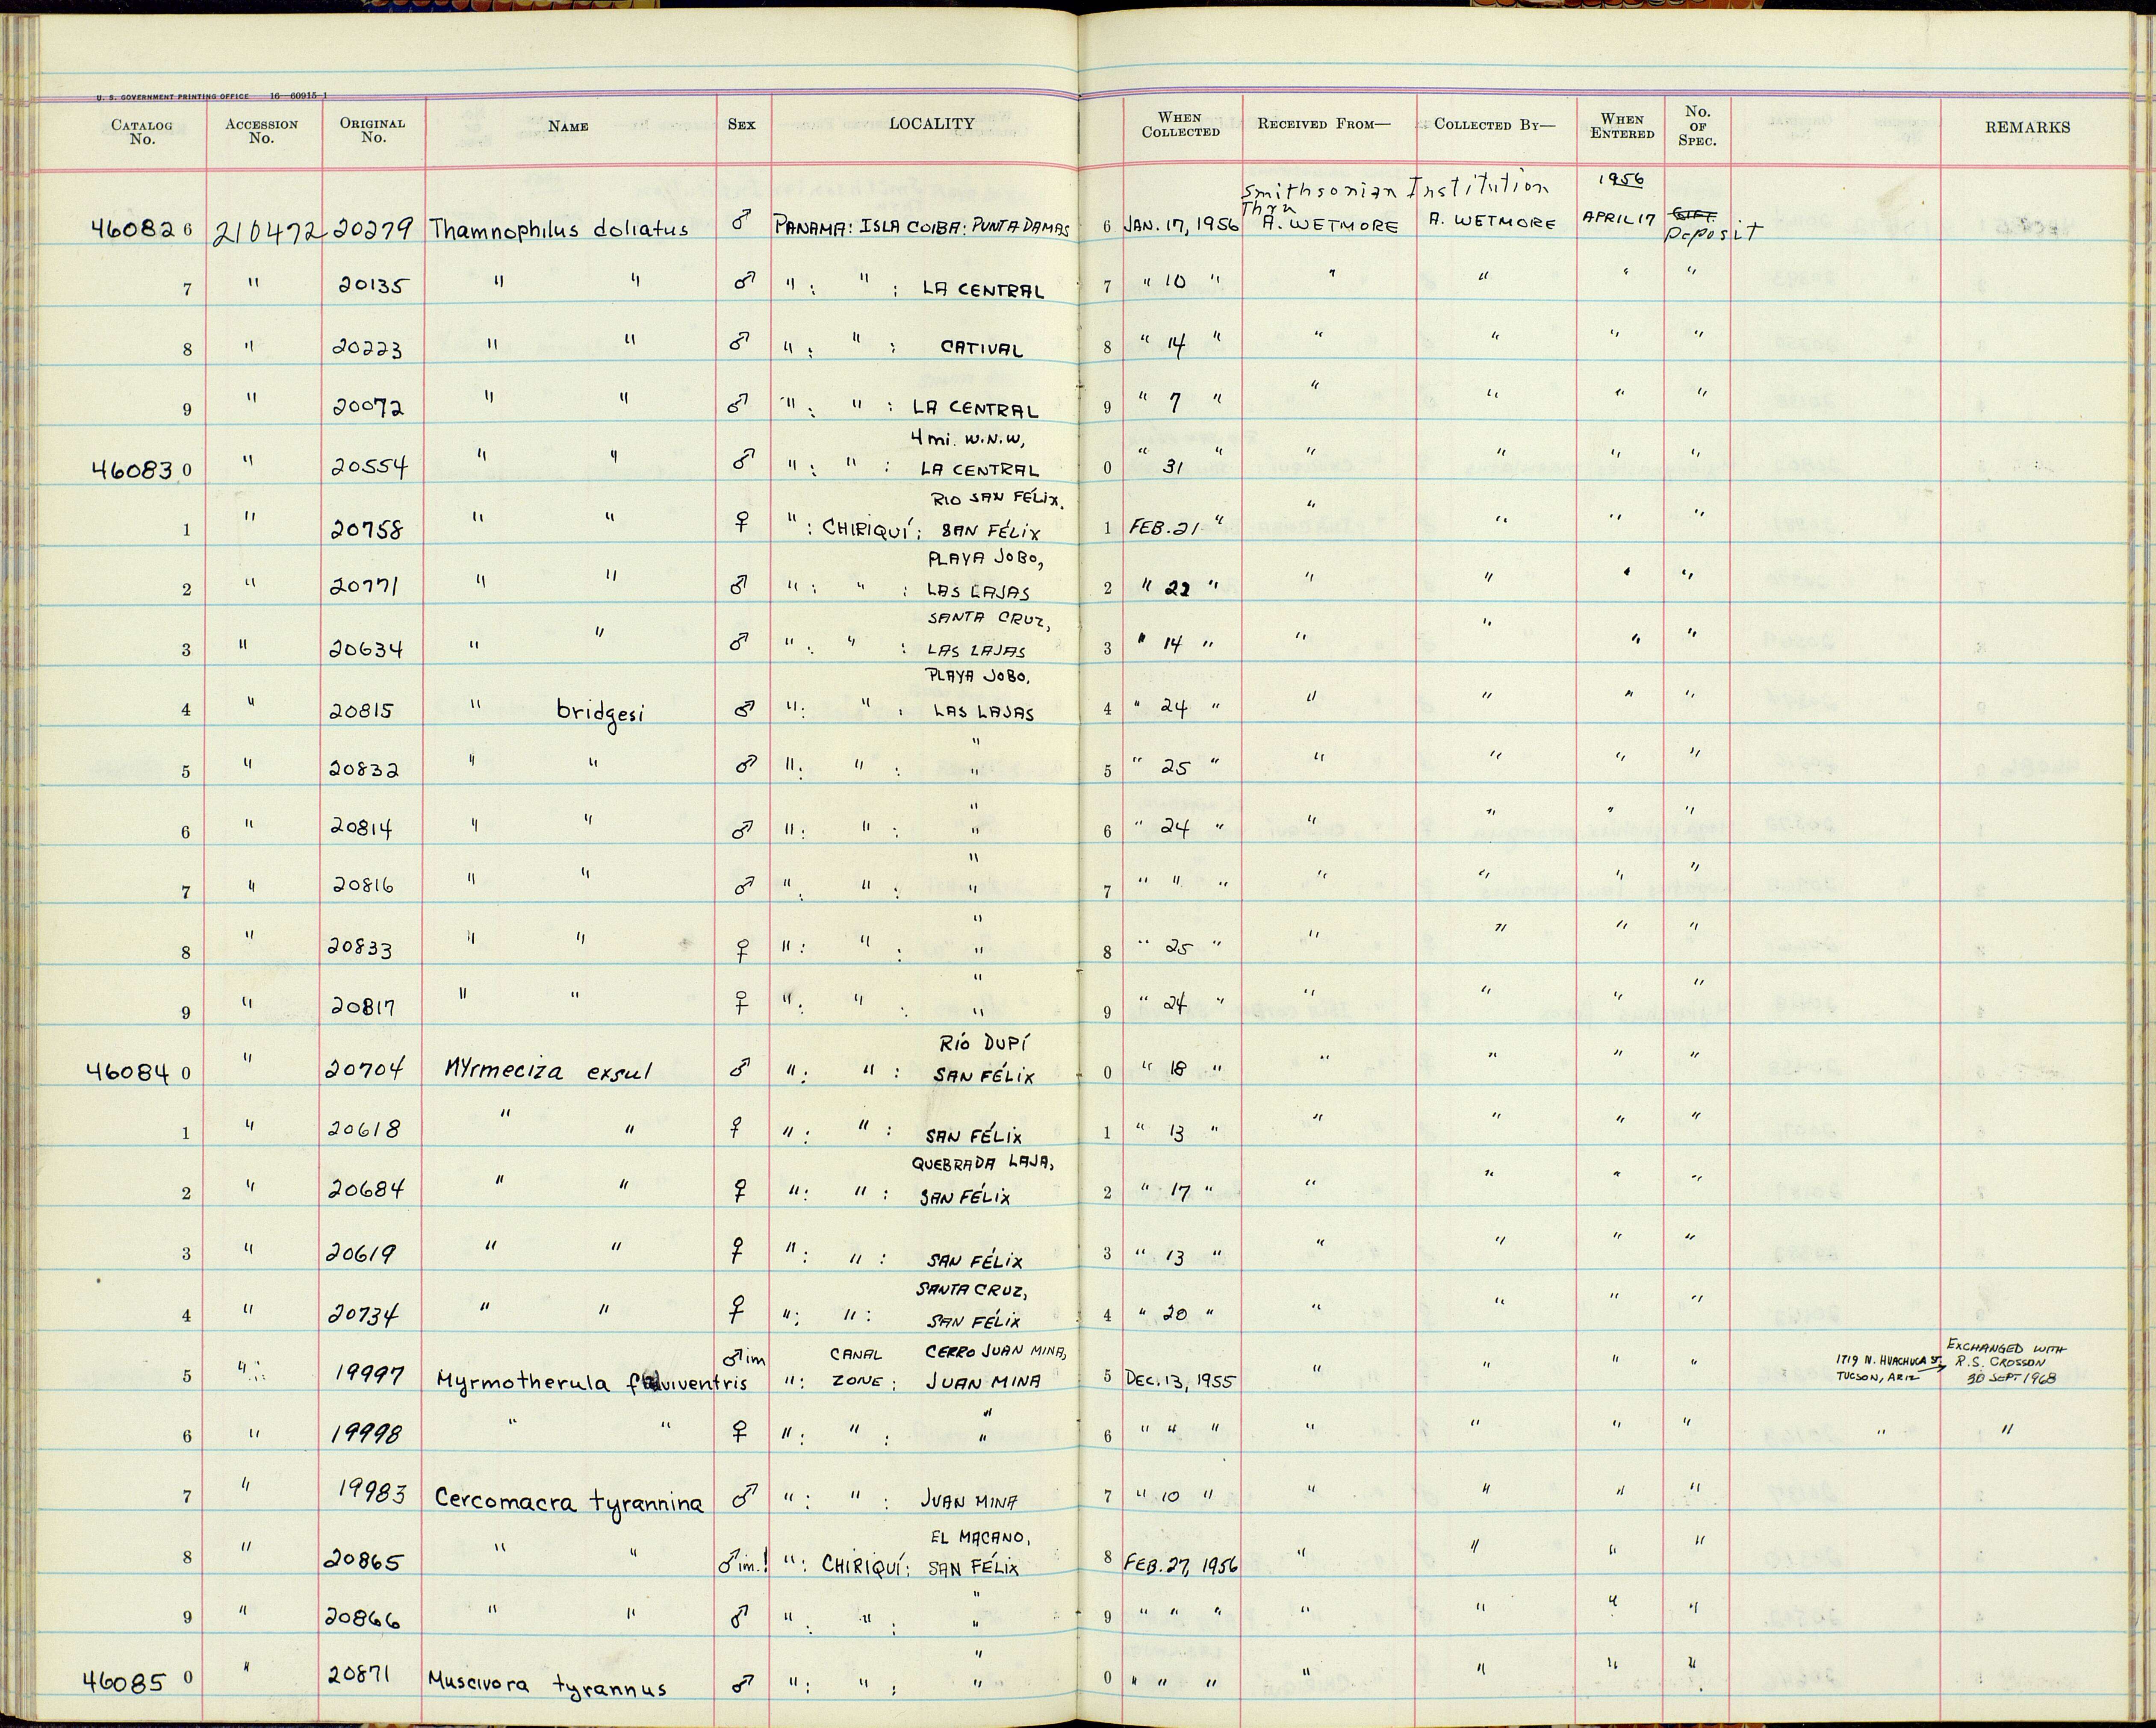 U. S. GOVERNMENT PRINTING OFFICE 16—60915-1
CATALOG No. ACCESSION No. ORIGINAL No. NAME SEX LOCALITY WHEN COLLECTED RECEIVED FROM— COLLECTED BY— WHEN ENTERED No. OF SPEC. REMARKS
Smithsonian Institution 1956
Thru
460826 210472 20279 Thamnophilus doliatus ♂ PANAMA: ISLA COIBA: PUNTA DAMAS 6 JAN. 17, 1956 A. WETMORE A. WETMORE APRIL 17 GIFT
Deposit
7 " 20135 " " ♂ " : " : LA CENTRAL 7 " 10 " " " " "
8 " 20223 " " ♂ " : " : CATIVAL 8 " 14 " " " " "
9 " 20072 " " ♂ " : " : LA CENTRAL 9 " 7 " " " " "
4 mi. W.N.W,
460830 " 20554 " " ♂ " : " : LA CENTRAL 0 " 31 " " " " "
RIO SAN FÉLIX,
1 " 20758 " " ♀ " : CHIRIQUÍ : SAN FÉLIX 1 FEB. 21 " " " " "
PLAYA JOBO,
2 " 20771 " " ♂ " : " : LAS LAJAS 2 " 22 " " " " "
SANTA CRUZ,
3 " 20634 " " ♂ " : " : LAS LAJAS 3 " 14 " " " " "
PLAYA JOBO,
4 " 20815 " bridgesi ♂ " : " : LAS LAJAS 4 " 24 " " " " "
"
5 " 20832 " " ♂ " : " : " 5 " 25 " " " " "
"
6 " 20814 " " ♂ " : " : " 6 " 24 " " " " "
"
7 " 20816 " " ♂ " : " : " 7 " " " " " " "
"
8 " 20833 " " ♀ " : " : " 8 " 25 " " " " "
"
9 " 20817 " " ♀ " : " : " 9 " 24 " " " " "
RÍO DUPÍ
460840 " 20704 Myrmeciza exsul ♂ " : " : SAN FÉLIX 0 " 18 " " " " "
1 " 20618 " " ♀ " : " : SAN FÉLIX 1 " 13 " " " " "
QUEBRADA LAJA,
2 " 20684 " " ♀ " : " : SAN FÉLIX 2 " 17 " " " " "
3 " 20619 " " ♀ " : " : SAN FÉLIX 3 " 13 " " " " "
SANTA CRUZ,
4 " 20734 " " ♀ " : " : SAN FÉLIX 4 " 20 " " " " "
♂ im CANAL CERRO JUAN MINA, EXCHANGED WITH
5 " 19997 Myrmotherula ♂ im " : ZONE : JUAN MINA 5 DEC. 13, 1955 " " " " 1719 N. HUACHUCA ST. R.S. CROSSON
TUCSON, ARIZ 30 SEPT 1968
"
6 " 19998 " " ♀ " : " : " 6 " " " " " " " " "
7 " 19983 Cercomacra tyrannina ♂ " : " : JUAN MINA 7 " 10 " " " " "
EL MACANO,
8 " 20865 " " ♂ im.! " : CHIRIQUÍ : SAN FÉLIX 8 FEB. 27, 1956 " " " "
"
9 " 20866 " " ♂ " : " : " 9 " " " " " " "
"
460850 " 20871 Muscivora tyrannus ♂ " : " : " 0 " " " " " " "